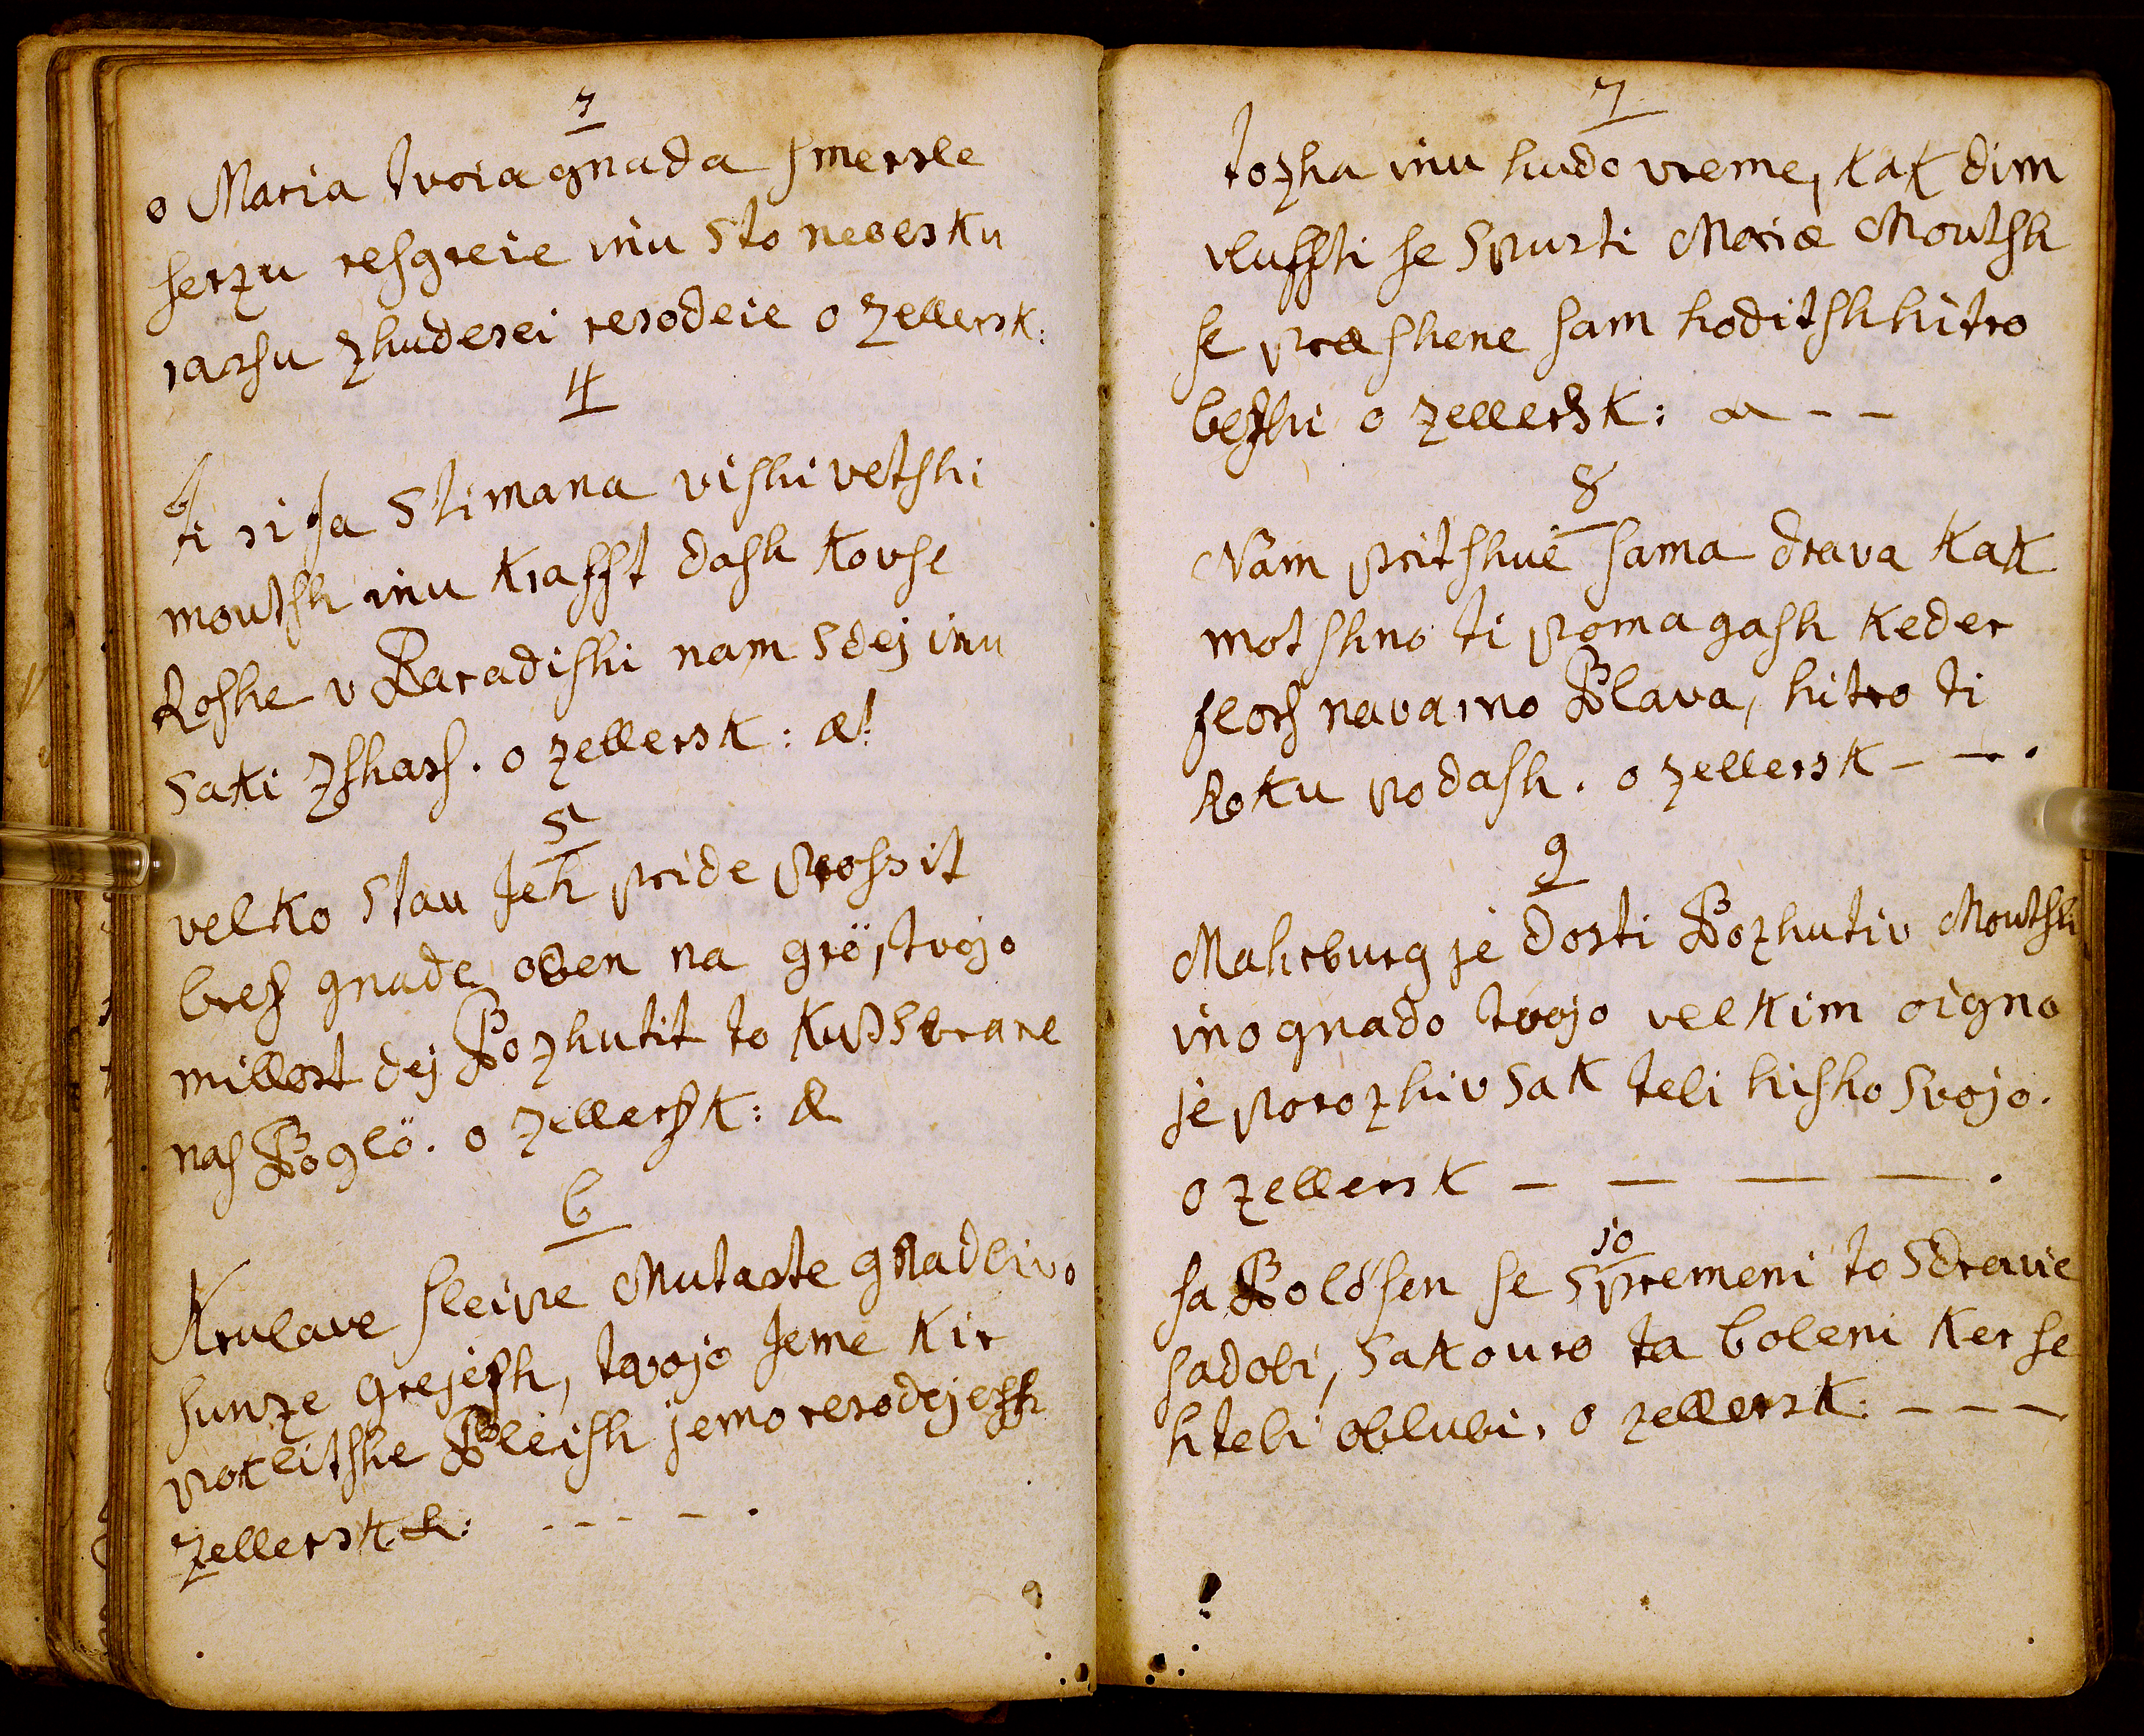 3
o Maria tvoia gnada smersle
serzu resgreie inu sto nebesku
rarsu zhudesei resodeie o zellersk:
4
ti si sa stimana vishi vetshi
moutsh inu Krafft dash Kovse
Roshe v Paradishi nam sdej inu
saki zshass. o zellersk: &!
5
velko stau Jeh pride prossit
bres gnade oben na grö, tvojo
millost dej Pozhutit to Kusserare
nas Poglö. o zellersk: &
6
Krulave sleipe Mutaste gnadlivo
sunze grejesh, tvojo Jeme kir
poklitshe Pleish jemo resodejesh
zellersk:
7
tozha inu hudo vreme, kak dim
vluffti se spusti Mariæ Moutsh
se præshene sam hoditsh hitro
beshi o zellersk: & - -
8
Nam pritshue sama drava Kak
motshno ti pomagash Keder
flos navarno Plava, hitro ti
Roku podash. o zellersk - - .
9
Mahrburg je dosti Pozhutiv Moutsh
ino gnado tvojo velkim oigno
je porozhiv sak tebi hisho svojo.
o zellersk - - - - .
10
sa Bolösen se spremeni to sdravie
sadobi, sakouro ta boleni Ker se
h tebi oblubi, o zellersk: - - -